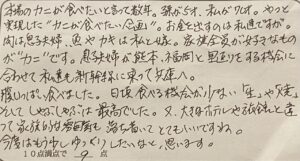 本場のカニが食べたいと言って数年。孫が5才、私が70才。やっと
実現した"カニが食べたい会"です。お金を出すのは私達ですが。
肉は息子夫婦、魚やカキは私と嫁。家族全員が好きなもの
が"カニ"です。息子夫婦が熊本、福岡と里まわりをする機会に
合わせて私達も新幹線に乗って夕庵へ。
腹いっぱい食べました。日頃食べる機会が少ない「生」や「焼」
そしてしゃぶしゃぶは最高でした。又、大きなホテルや旅館と違
って家族的な雰囲気も落ち着いてとてもいいですね。
今度はもう少しゆっくりしたいなと思います。
10点満点で 9 点